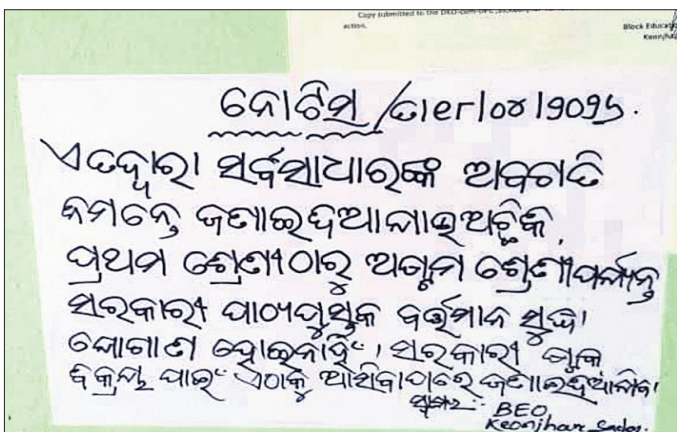 Copy submitted to the DEO-cum-DPC
action.
Block Educatio
Keonjha
ନୋଟିସ୍ /
ଏତଦ୍ୱାରା ସର୍ବସାଧାରଙ୍କ ଅବଗତି
ନିମନ୍ତେ ଜଣାଇଦିଆଯାଉଅଛିକି
ପ୍ରଥମ ଶ୍ରେଣୀଠାରୁ ଅଷ୍ଟମ ଶ୍ରେଣୀପର୍ଯ୍ୟନ୍ତ
ସରକାରୀ ପାଠ୍ୟପୁସ୍ତକ ବର୍ତ୍ତମାନ ସୁଦ୍ଧା
ଯୋଗାଣ ହୋଇନାହିଁ। ସରକାରୀ
ବିକ୍ରୟ ପାଇଁ ଏଠାକୁ ଆସିବାପରେ
BEO
Keonjhar Sadar.